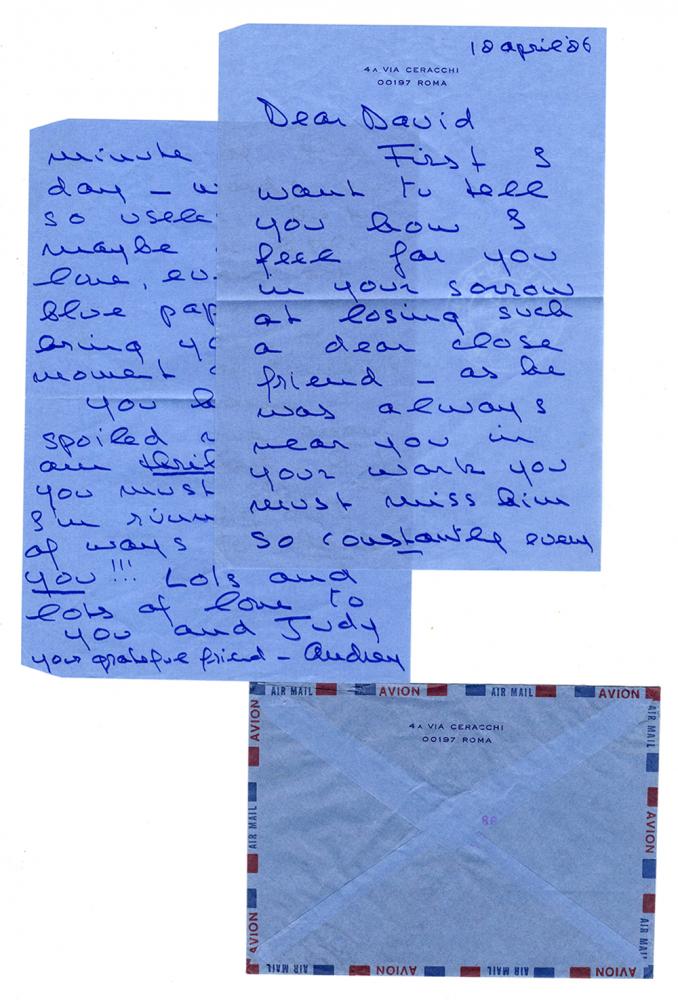 10 april '86
4A VIA CERACCHI
00197 ROMA
Dear David
First I
want to tell
you how I
feel for you
in your sorrow
at losing such
a dear close
friend – as he
was always
near you in
your work you
must miss him
so constantly every
minute
day – w
so usele
maybe
love, ev
blue pap
bring yo
moment
you
spoiled
am thril
you must
I'm runn
of ways
you!!! Lots and
lots of love to
you and Judy
your grateful friend – Audrey
AIR MAIL AVION AIR MAIL AVION
4A VIA CERACCHI
00197 ROMA
AVION AIR MAIL AVION
AIR MAIL AVION AIR MAIL
AIR MAIL AVION AIR MAIL AVION